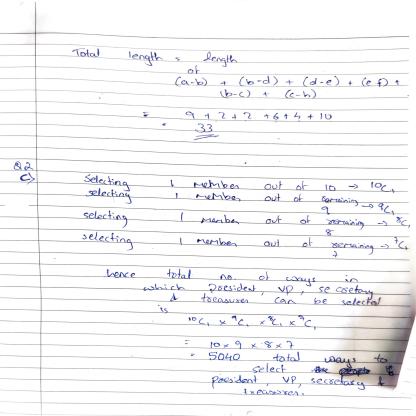 Total length = length
of
(a-b) + (b-d) + (d-e) + (e f) +
(b-c) + (c-h)
= 9 + 2 + 2 + 6 + 4 + 10
= 33
Q2
c)
Selecting 1 member out of 10 → ¹⁰C₁
selecting 1 member out of remaining 9 → ⁹C₁
selecting 1 member out of remaining 8 → ⁸C₁
selecting 1 member out of remaining 7 → ⁷C₁
hence total no. of ways in
which president, VP, secretary
& treasurer can be selected
is
¹⁰C₁ × ⁹C₁ × ⁸C₁ × ⁷C₁
= 10 × 9 × 8 × 7
= 5040 total ways to
select
president, VP, secretary &
treasurer.